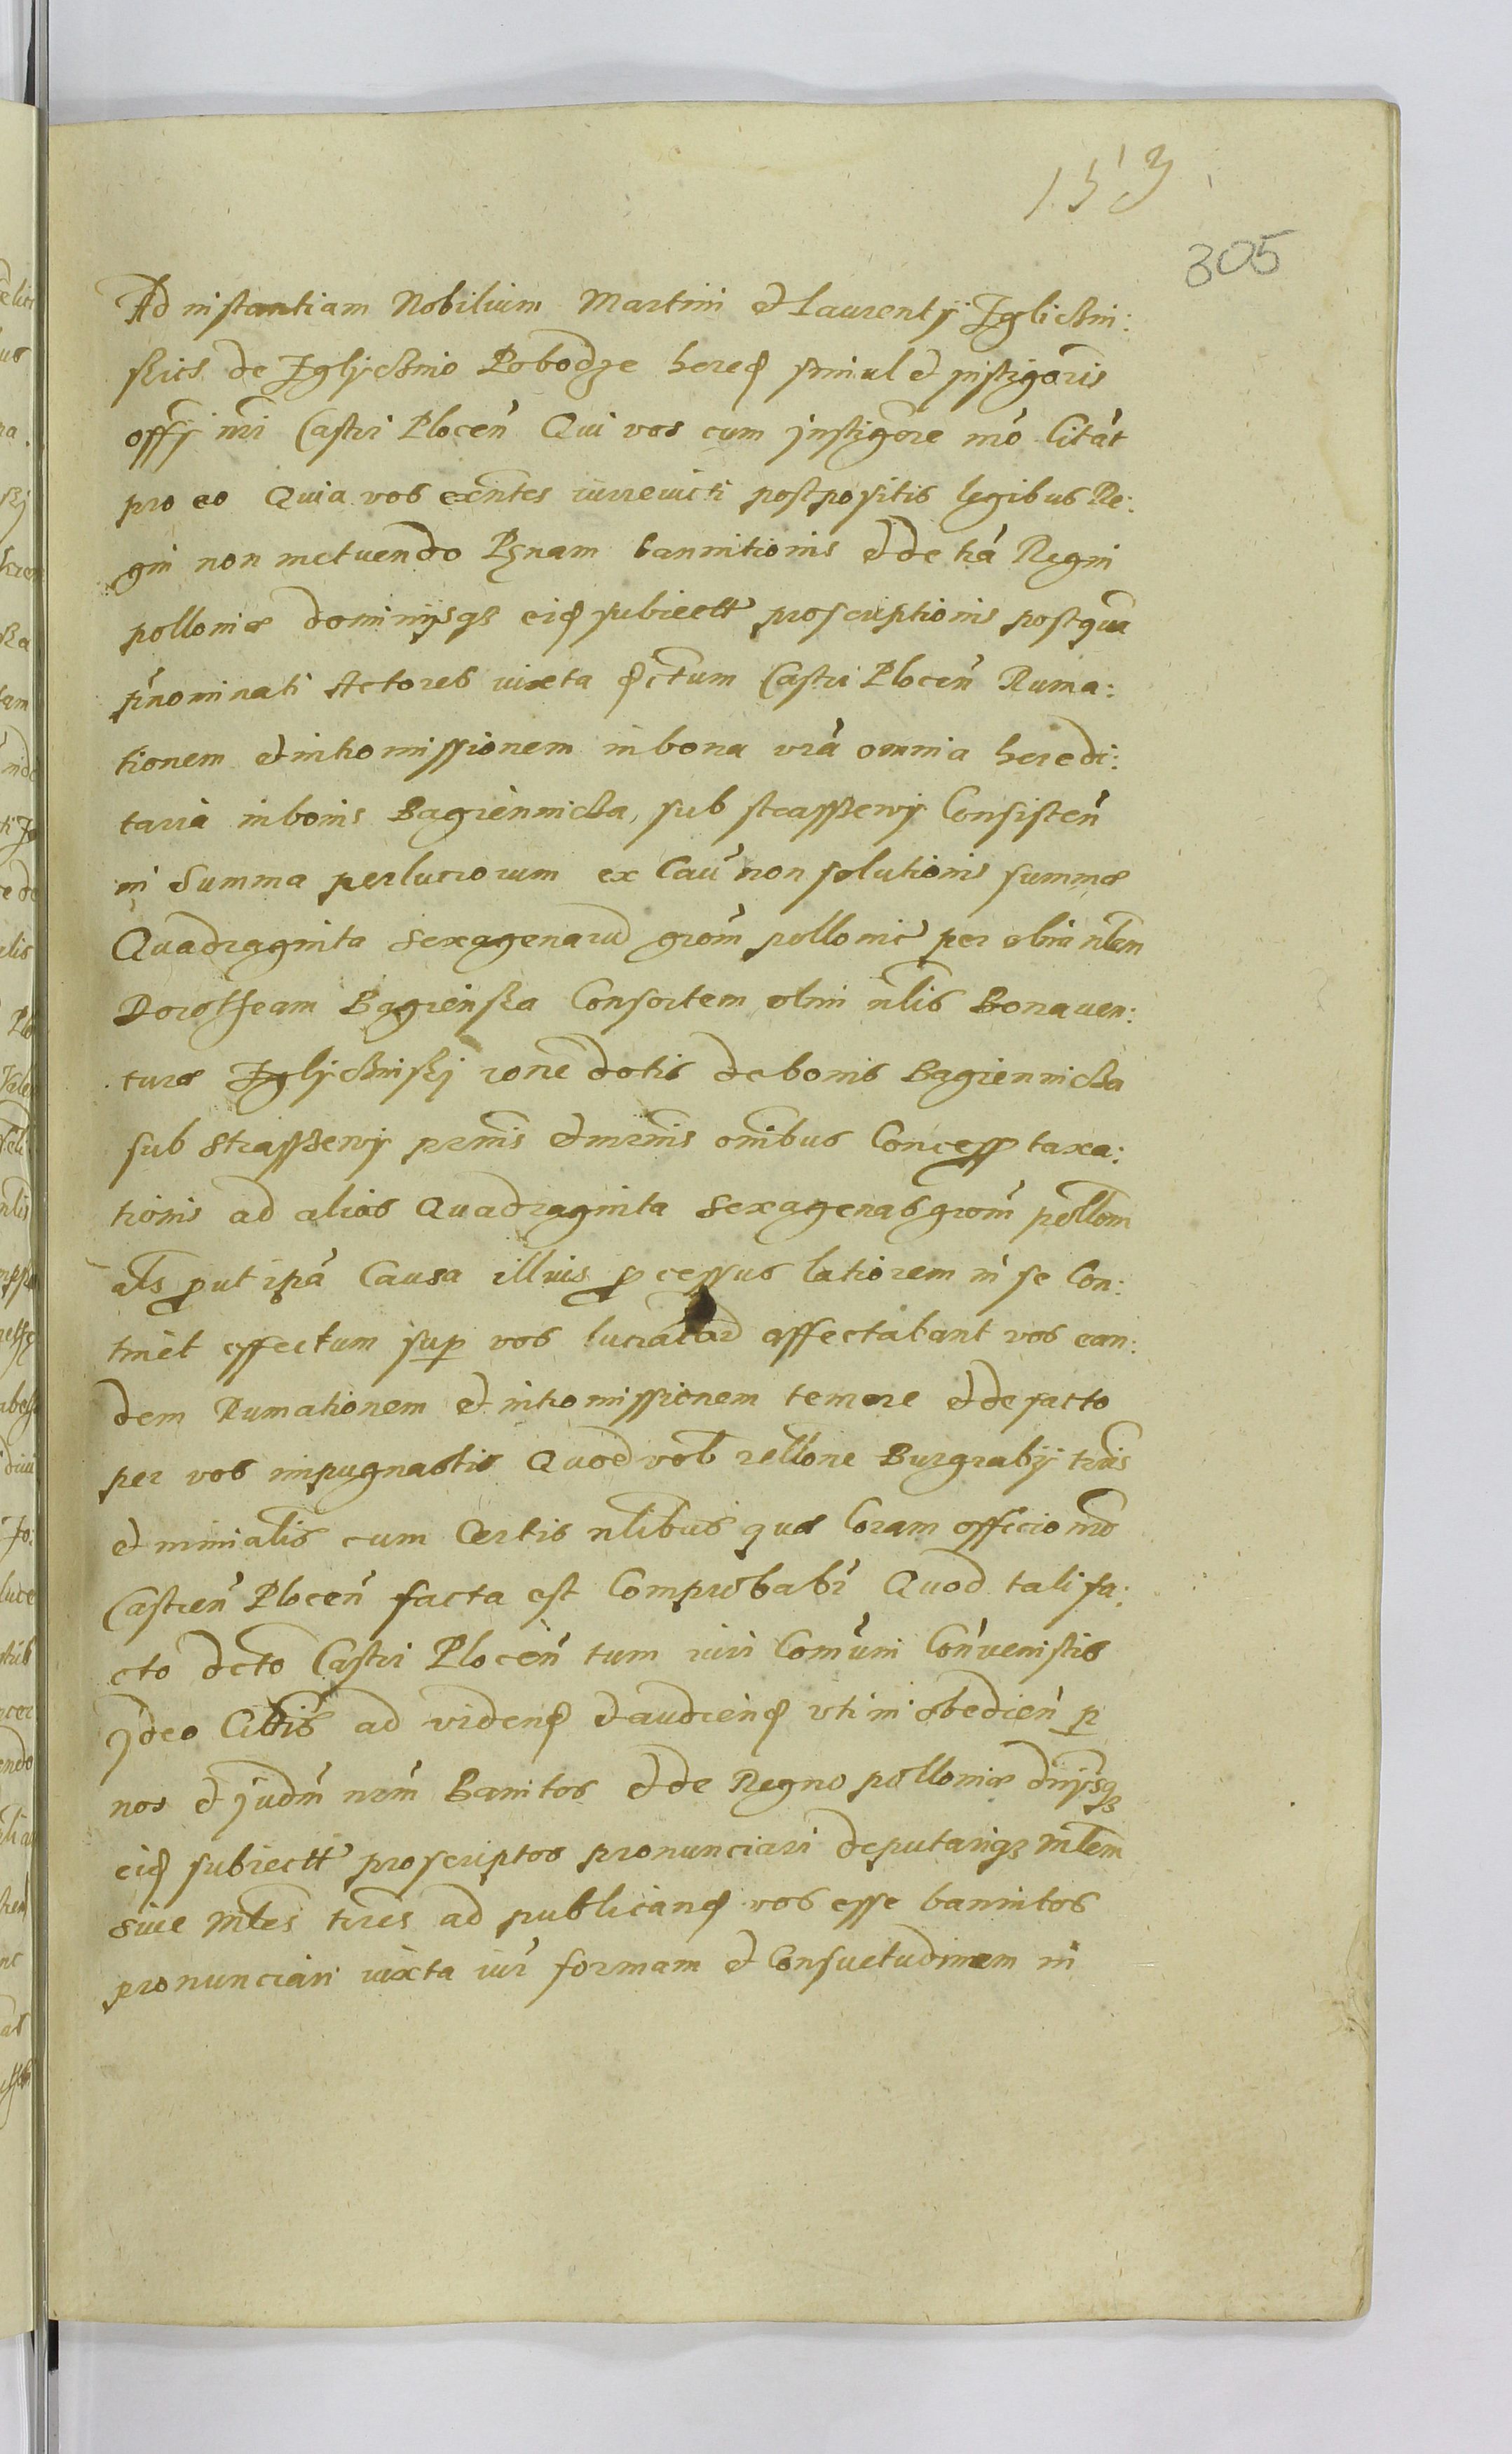 153
305
Ad instantiam Nobilium Martini et Laurentÿ Iglickin:
skich de Iglÿckino Pobodze hered simul et instigoris
offÿ nri Castri Plocen Qui vos cum instigore nro citat
pro eo Quia vos exntes iurevicti postpositis legibus Re:
gni non metuendo Pęnam bannitionis et de tra Regni
polloniæ dominÿsqz eid subiectt proscriptionis postqua
pnominati Actores iuxta dctum Castri Plocen Ruma:
tionem et intromissionem in bona vra omnia heredi:
taria in bonis Bagiennicka, sub straskewÿ Consisten
in Summa perlucrorum ex Cau non solutionis summæ
Quadraginta sexagenaru grom pollonic per olim nlem
Dorotheam Bagienska Consortem olim nlis Bonaven:
turæ Iglÿckinskj rone dotis de bonis Bagiennicka
sub straskewÿ prnis et mrnis omibus Concess taxa:
tionis ad alias Quadraginta sexagenas grom pollom
als put ipa Causa illius pcessus latiorem in se Con:
tinet effectum sup vos lucrata affectabant vos ean:
dem Rumationem et intromissionem temere et de facto
per vos impugnastis Quod vob rellone Burgrabÿ tris
et minialis cum Certis nlibus quæ Coram officio nro
Castren Plocen facta est Comprobabr Quod tali fa:
cto dcto Castri Plocen tum iuri Comuni Convenistis
ideo Cittis ad videnď et audienď uti inobedien p
nos et judm nrm Banitos et de Regno polloniæ dnÿsqz
eid subiectt proscriptos pronunciari deputariqz mlem
sive mles tres ad publicand vos esse bannitos
pronunciari iuxta iur formam et Consuetudinem in